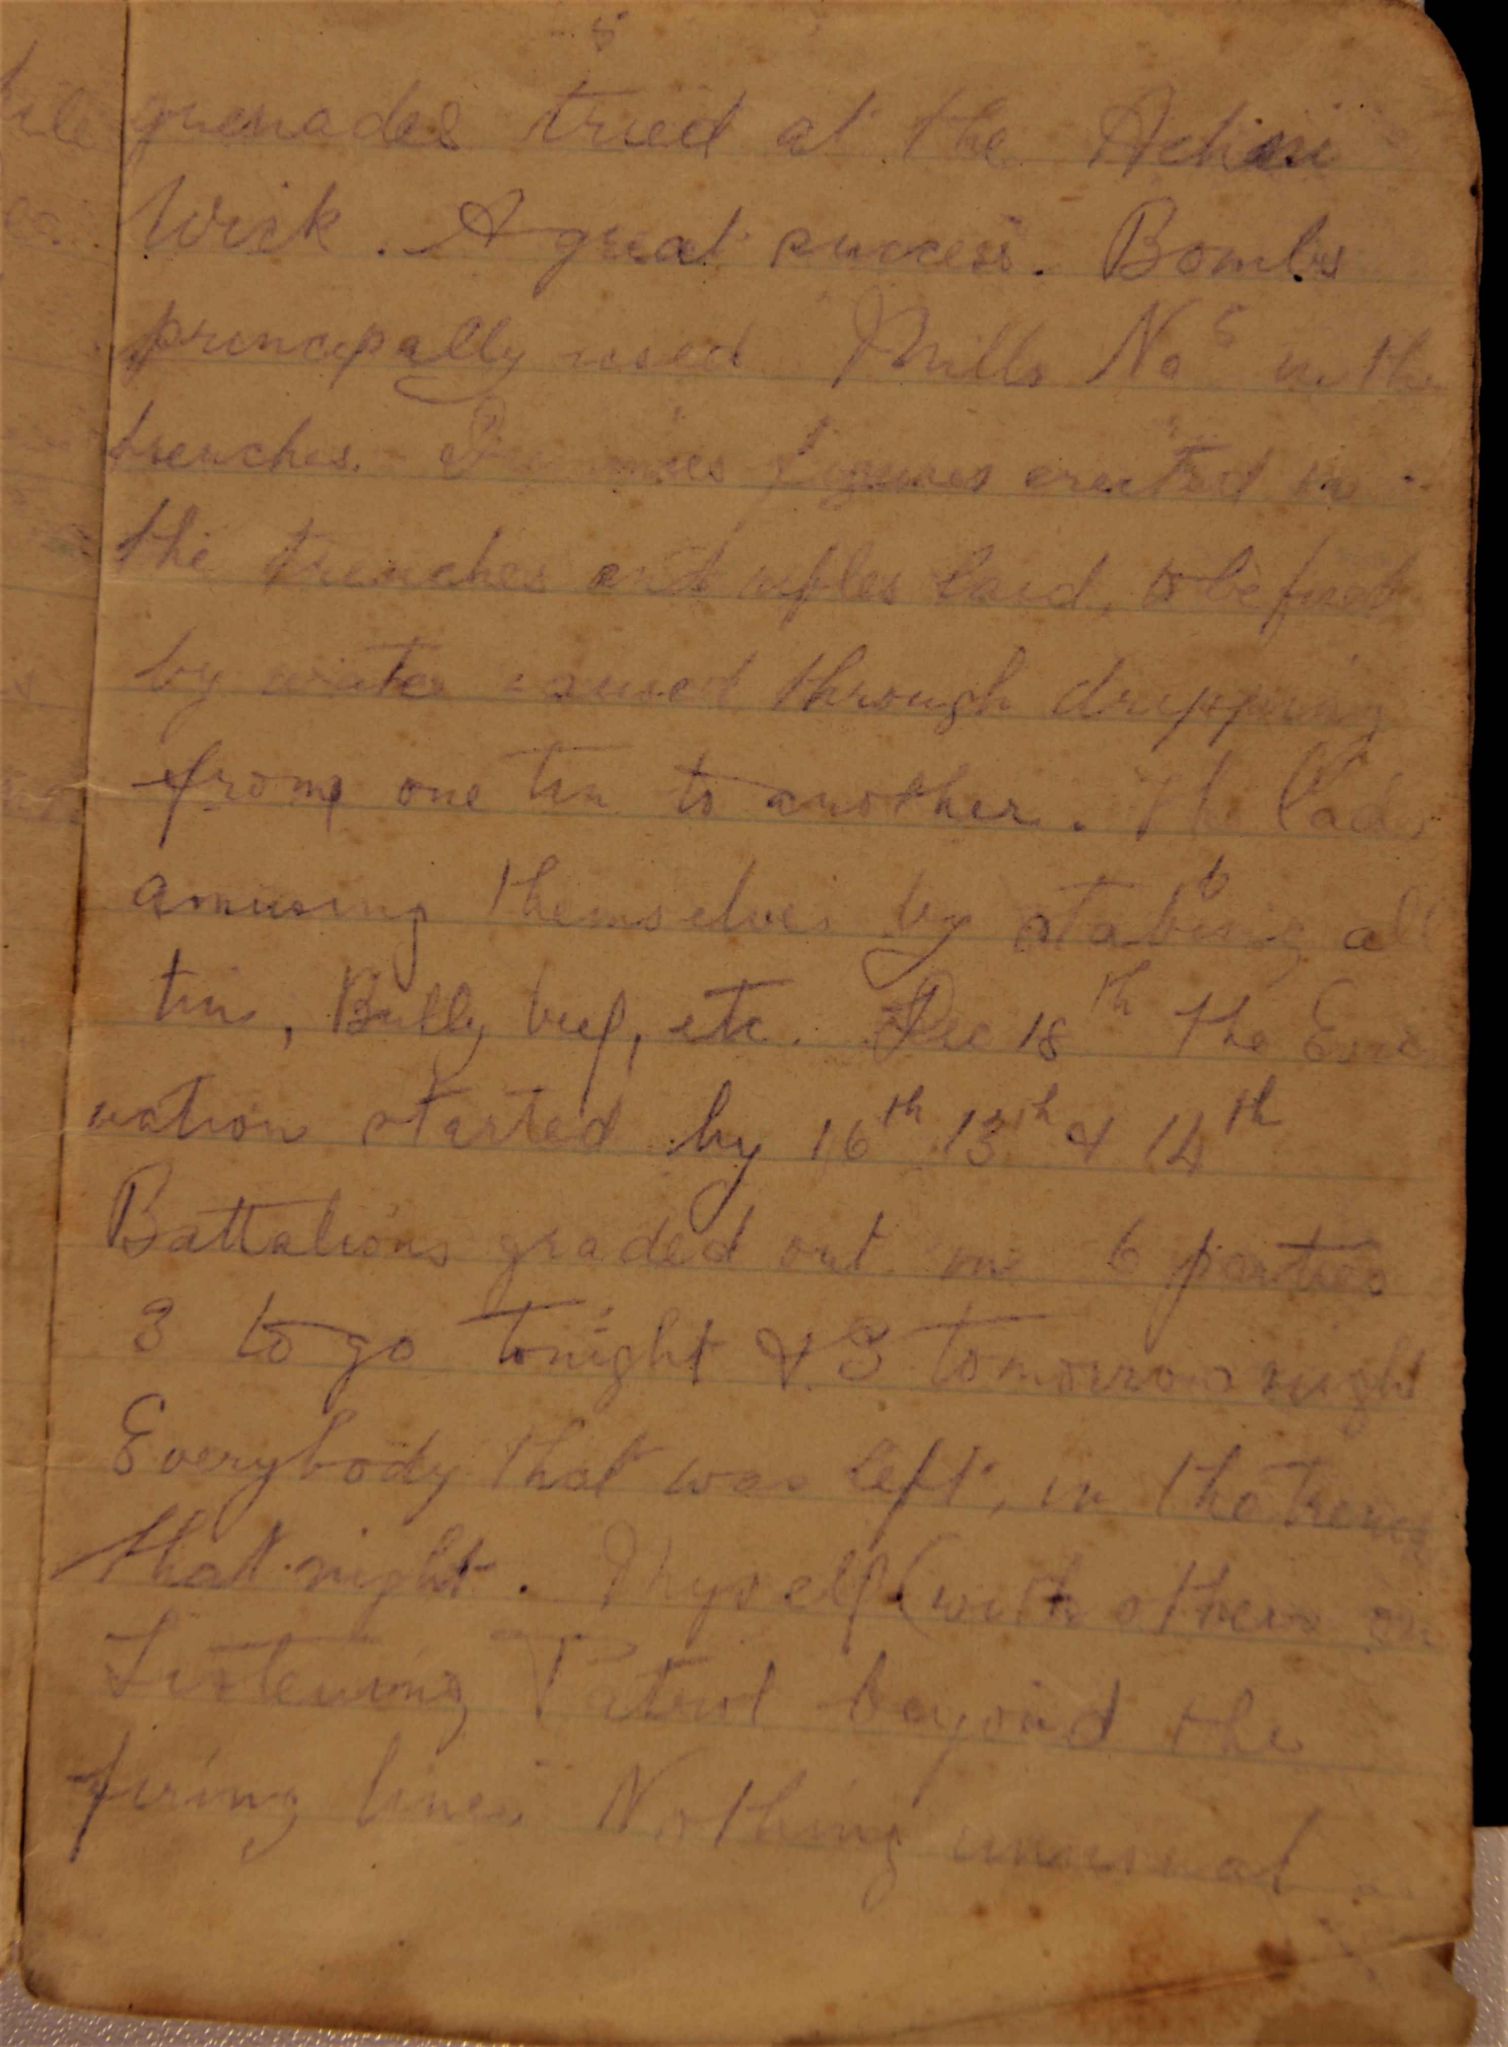 5
grenades tried at the
Wick. A great success. Bombs
principally used Mills No 5 in the
trenches. figures erected in
the trenches and rifles laid, to be fired
by water issued through dripping
from one tin to another. The lads
amusing themselves by stabbing all
tins, Bully beef, etc. Dec 18th the Evac
uation started by 16th 13th & 14th
Battalions graded out in 6 parties
3 to go tonight & 3 tomorrow night
Everybody that was left, in the trench
that night. Myself (with others on
Listening Patrol beyond the
firing lines Nothing unusual